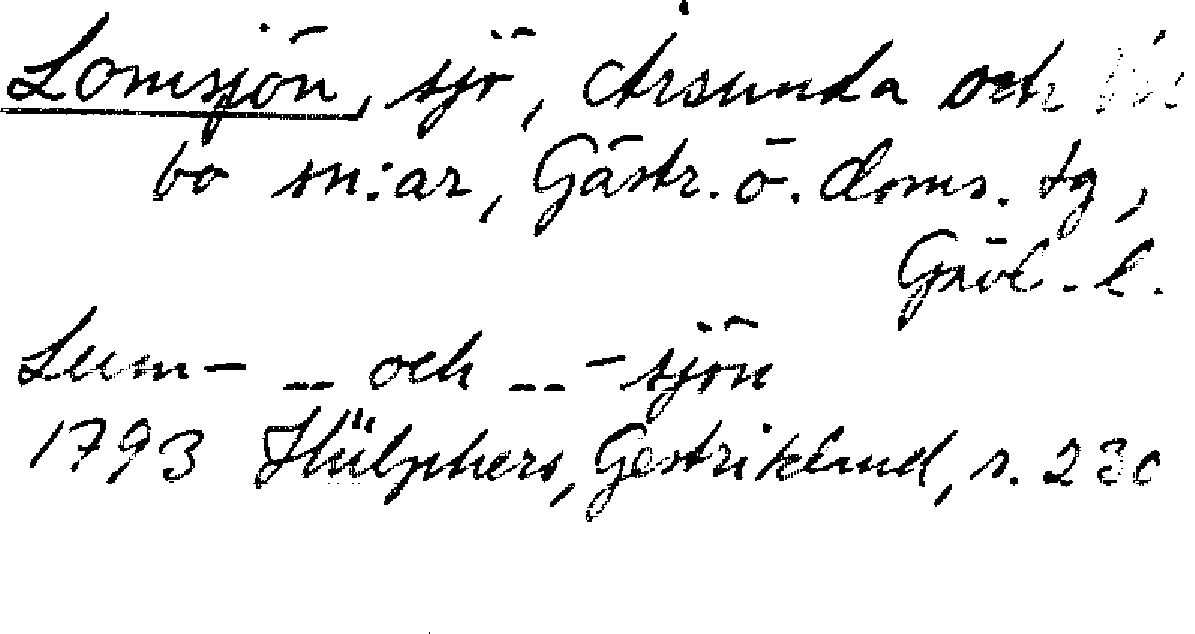 Lomsjön, sjö, Årsunda och
bo sn:ar, Gästr. ö. doms. tg,
Gävl. l.
Lum- -- och -- -sjön
1793 Hülphers, Gestrikland, s. 230